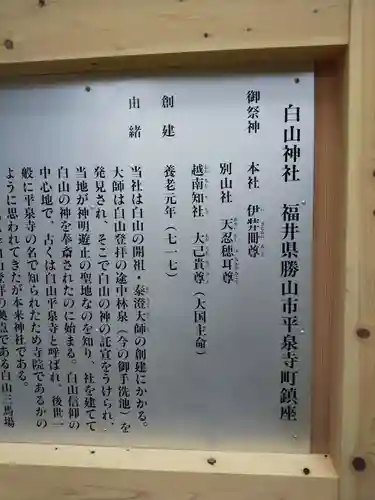 白山神社 福井県勝山市平泉寺町鎮座
御祭神 本社 伊弉冊尊
別山社 天忍穂耳尊
越南知社 大己貴尊（大国主命）
創建 養老元年（七一七）
由緒 当社は白山の開祖・泰澄大師の創建にかかる。
大師は白山登拝の途中林泉（今の御手洗池）を
発見され、そこで白山の神の託宣をうけられ、
当地が神明遊止の聖地なのを知り、社を建てて
白山の神を奉斎されたのに始まる。白山信仰の
中心地で、古くは白山平泉寺と呼ばれ、後世一
般に平泉寺の名で知られたため寺院であるかの
ように思われてきたが本来神社である。
白山登拝の拠点である白山三馬場